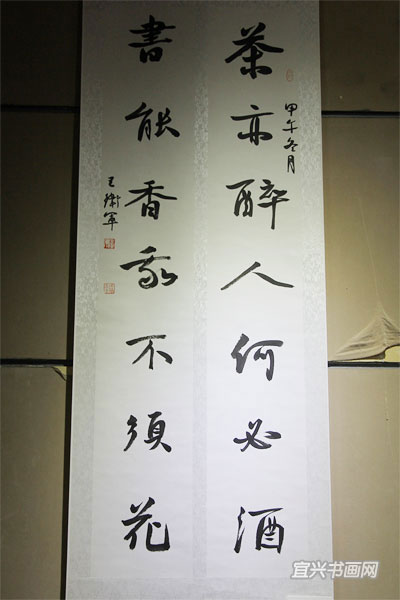 茶亦醉人何必酒
甲午冬月
書能香我不須花
王衛軍
宜兴书画网